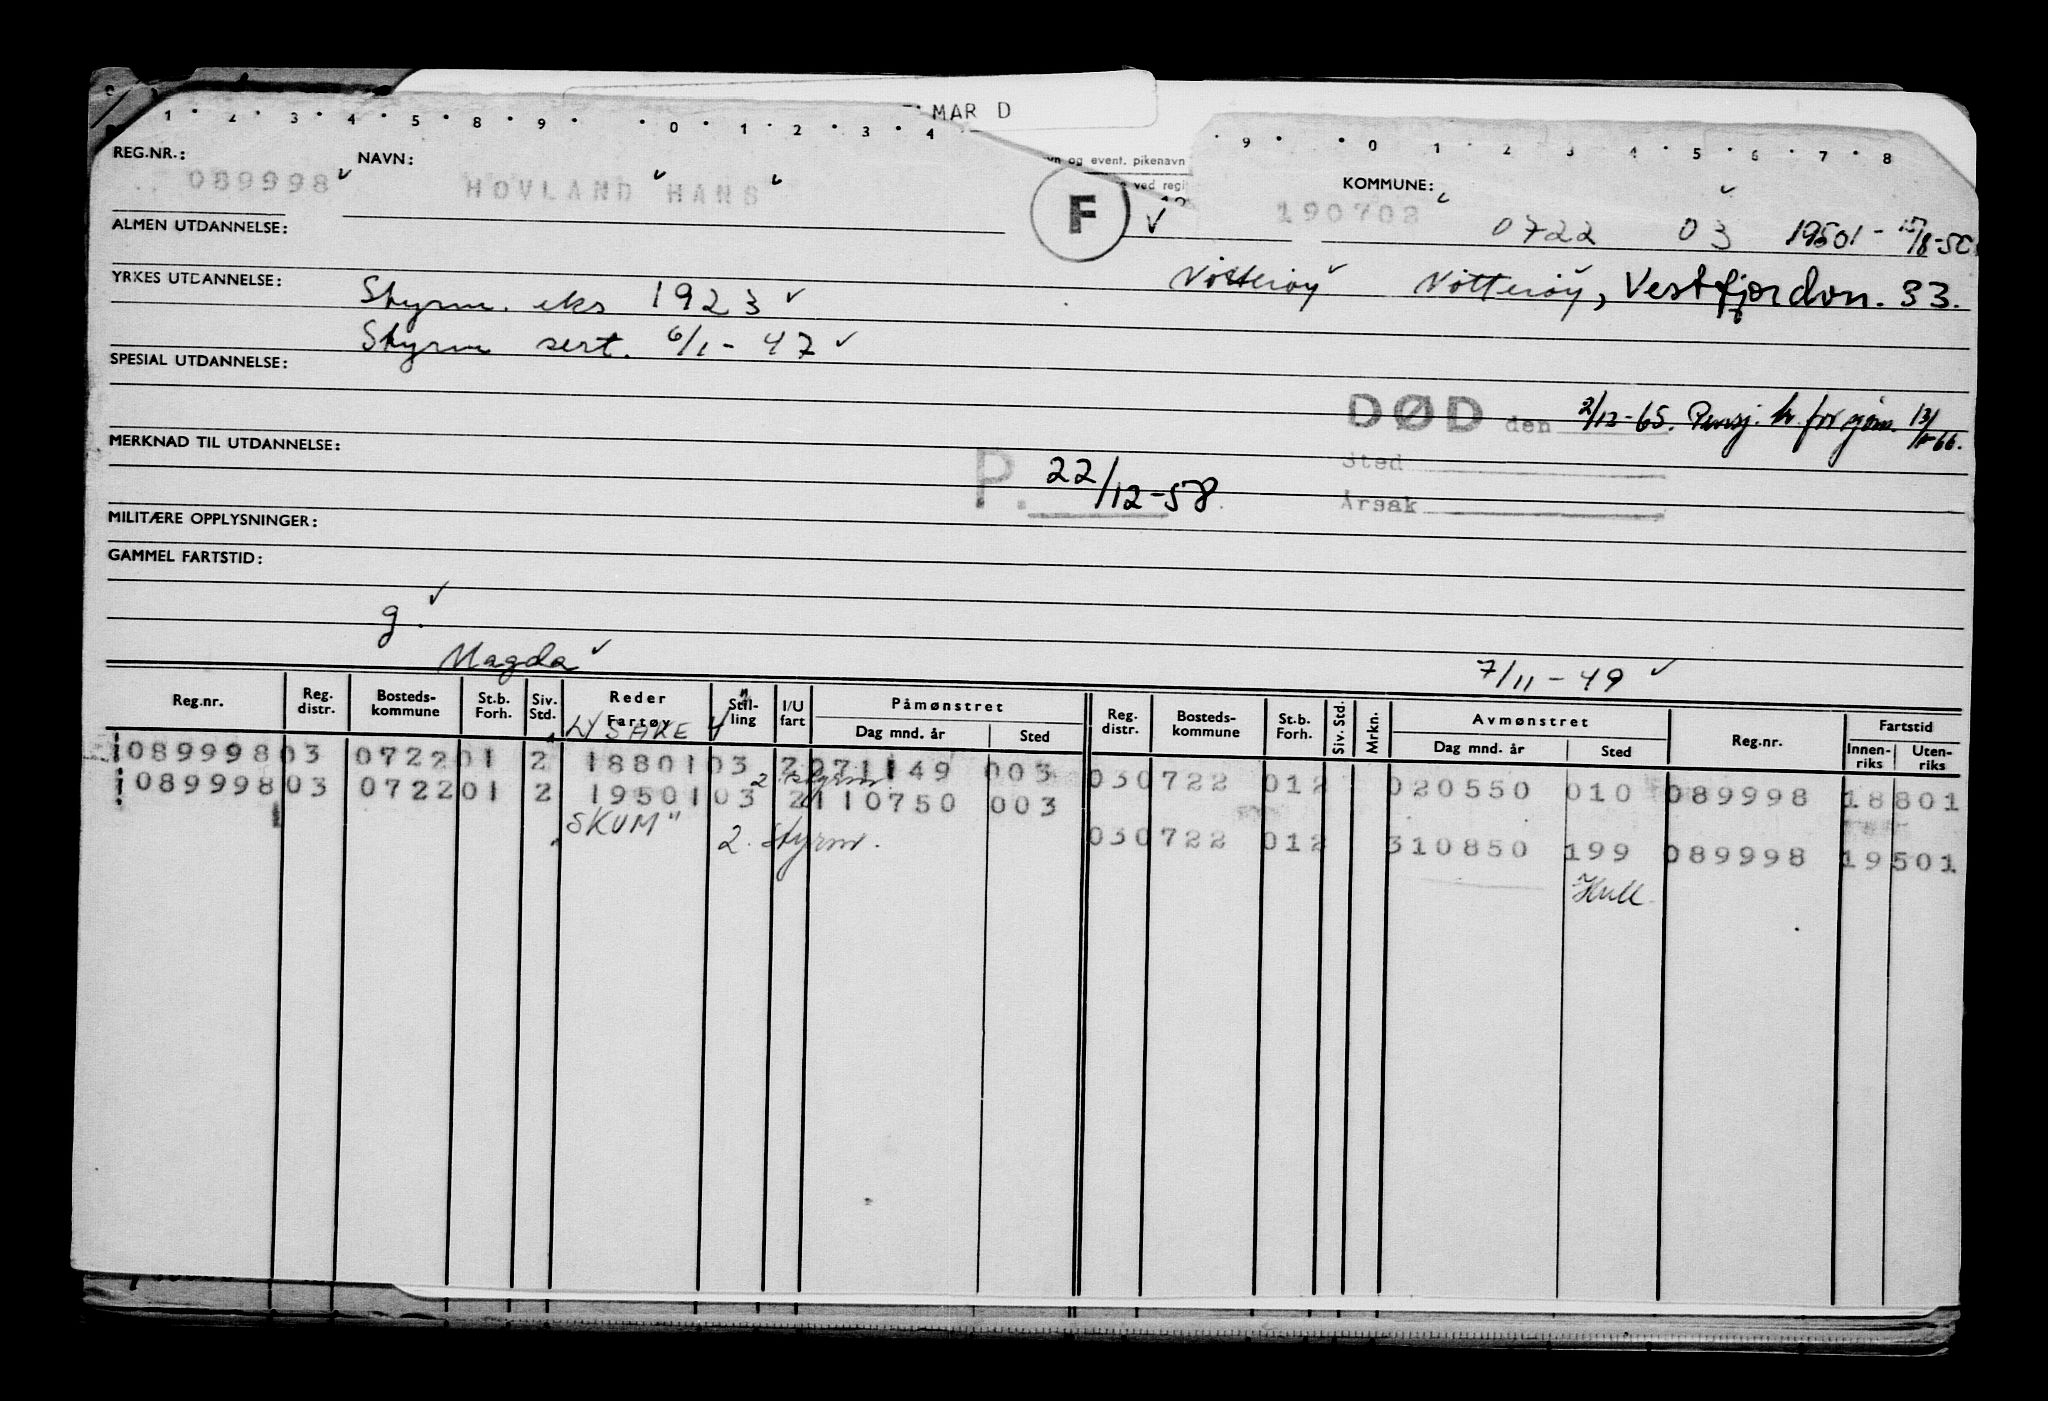 MAR D
1 2 3 4 5 8 9 0 1 2 3 4 9 0 1 2 3 4 5 6 7 8
REG.NR.: NAVN: og event. pikenavn KOMMUNE:
ved regi
089998 HOVLAND HANS F 190702 0722 03 19501 - 15/8-50
ALMEN UTDANNELSE:
Nötteröy Nötteröy, Vestfjorden. 33.
YRKES UTDANNELSE: Styrm. eks 1923
Styrm sert. 6/1-47
SPESIAL UTDANNELSE:
DØD den 2/12-65. Pensj. kr. for gjens. 13/1-66.
MERKNAD TIL UTDANNELSE:
Sted
P. 22/12-58
Årsak
MILITÆRE OPPLYSNINGER:
GAMMEL FARTSTID:
g.
Magda 7/11-49
Reg.nr. Reg. distr. Bosteds-kommune St.b. Forh. Siv. Std. Reder Fartøy Stil-ling I/U fart Påmønstret Dag mnd. år Sted Reg. distr. Bosteds-kommune St.b. Forh. Siv. Std. Mrkn. Avmønstret Dag mnd. år Sted Reg.nr. Fartstid Innen-riks Uten-riks
LYSAKE V"
089998 03 0722 01 2 18801 03 2 071149 003 030722 012 020550 010 089998 18801
2 styrm.
089998 03 0722 01 2 19501 03 2 110750 003 030722 012 310850 199 089998 19501
SKUM" 2. Styrm.
Hull